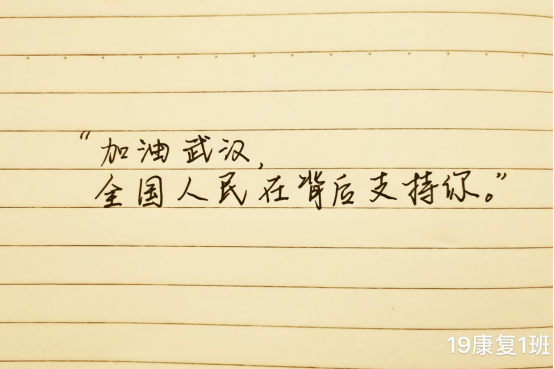 “加油武汉,
全国人民在背后支持你。”
19康复1班